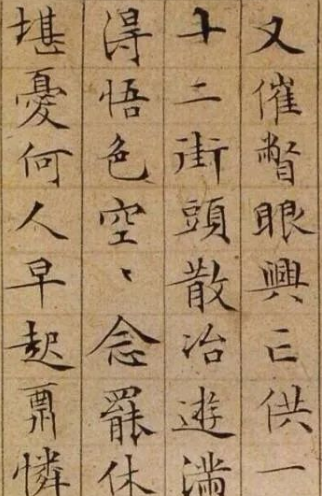 又催瞥眼興亡供一
十二街頭散冶遊滿
得悟色空、念罷休
堪憂何人早起憐